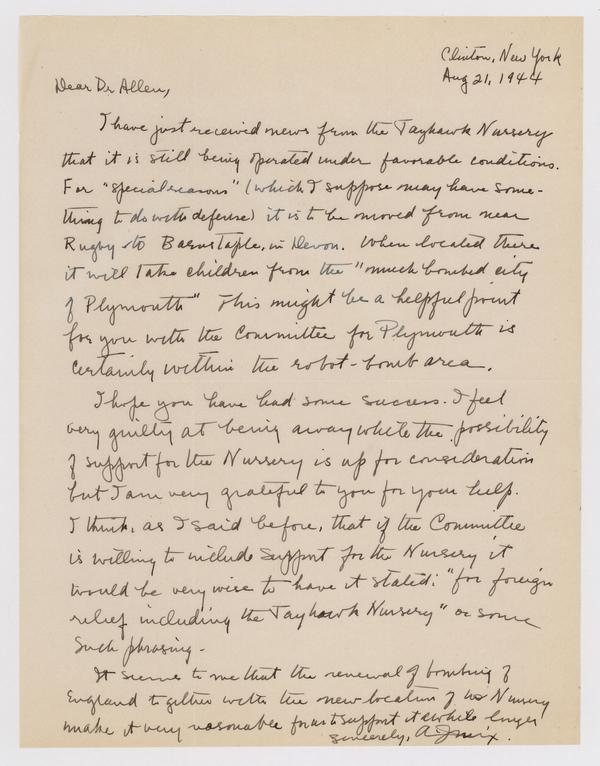 Clinton, New York
Aug 21, 1944
Dear Dr Allen,
I have just received news from the Tayhawk Nursery
that it is still being operated under favorable conditions.
For "special reasons" (which I suppose may have some-
thing to do with defense) it is to be moved from near
Rugby to Barnstaple, in Devon. When located there
it will take children from the "much bombed city
of Plymouth" This might be a helpful point
for you with the Committee for Plymouth is
certainly within the robot-bomb area.
I hope you have had some success. I feel
very guilty at being away while the possibility
of support for the Nursery is up for consideration
but I am very grateful to you for your help.
I think, as I said before, that if the Committee
is willing to include support for the Nursery it
would be very wise to have it stated: "for foreign
relief including the Tayhawk Nursery" or some
such phrasing -
It seems to me that the renewal of bombing of
England together with the new location of Nursery
make it very reasonable for us to support it awhile longer
Sincerely,